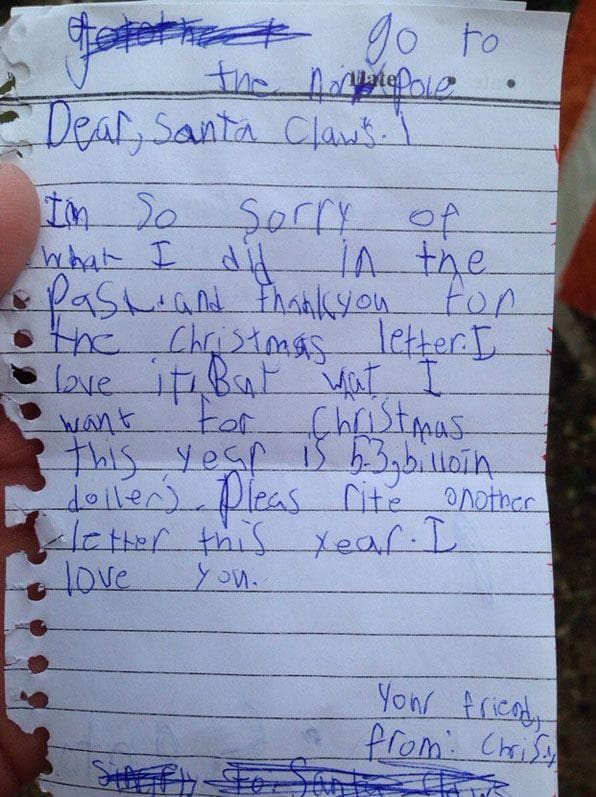 go to
the nor Pole
Date
Dear, Santa Claws.
Im So Sorry of
what I did in the
Past. and thankyou for
the Christmas letter. I
love it. But wat I
want for Christmas
this year is
dollers. Pleas rite onother
letter this year. I
love you.
Your friend,
from: Chris